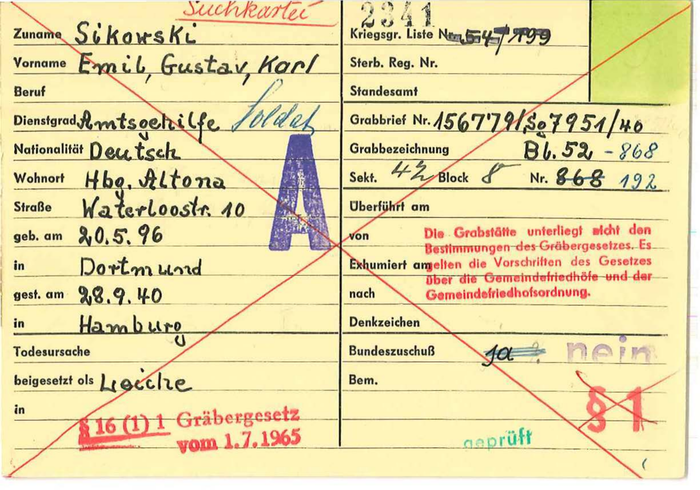 Suchkartei
2341
Zuname Sikowski
Vorname Emil, Gustav, Karl
Beruf
Dienstgrad Amtsgehilfe Soldat
Nationalität Deutsch
Wohnort Hbg. Altona
Straße Waterloostr. 10
geb. am 20.5.96
in Dortmund
gest. am 28.9.40
in Hamburg
Todesursache
beigesetzt als Leiche
in
§ 16 (1) 1 Gräbergesetz
vom 1.7.1965
A
Kriegsgr. Liste Nr. 54/199
Sterb. Reg. Nr.
Standesamt
Grabbrief Nr. 156779/So7951/40
Grabbezeichnung Bl. 52 - 868
Sekt. 42 Block 8 Nr. 868 192
Überführt am
von
Exhumiert am
nach
Die Grabstätte unterliegt nicht den
Bestimmungen des Gräbergesetzes. Es
gelten die Vorschriften des Gesetzes
über die Gemeindefriedhöfe und der
Gemeindefriedhofsordnung.
Denkzeichen
Bundeszuschuß ja nein
Bem.
§ 1
geprüft